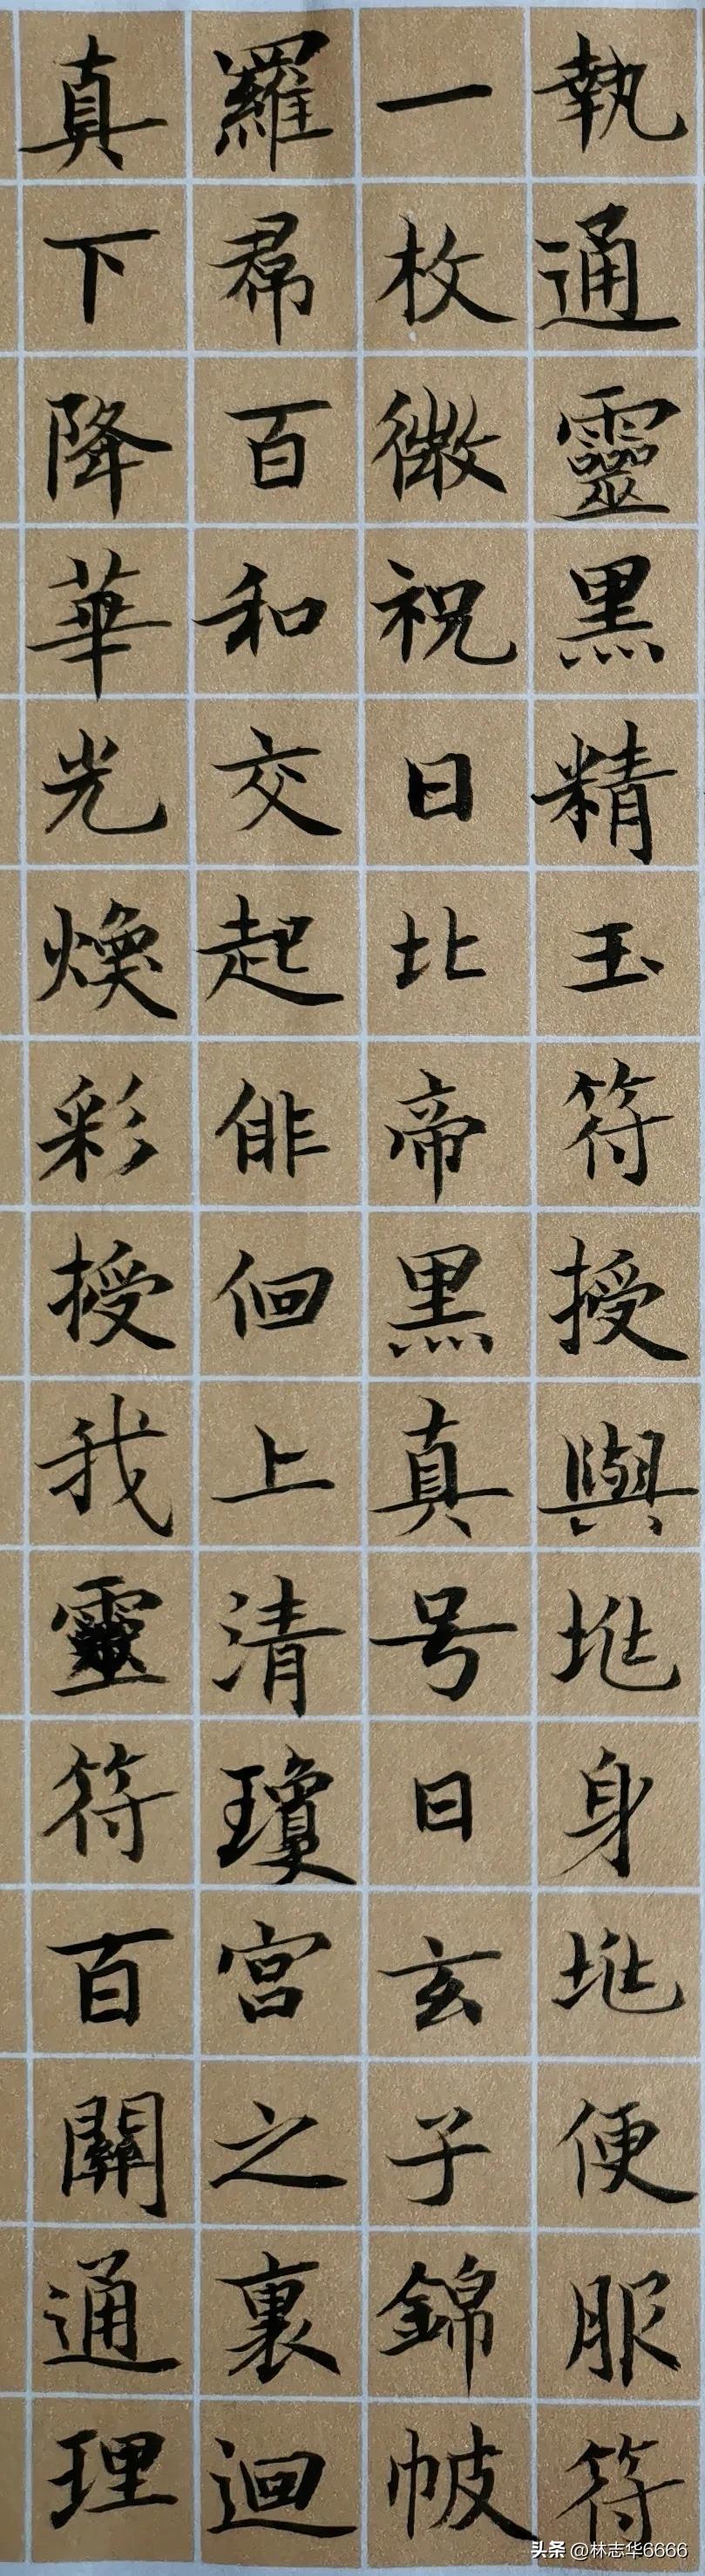 執通靈黑精玉符授與兆身兆便服符
一枚微祝曰北帝黑真号曰玄子錦帔
羅帬百和交起俳佪上清瓊宮之裏迴
真下降華光煥彩授我靈符百關通理
头条 @林志华6666